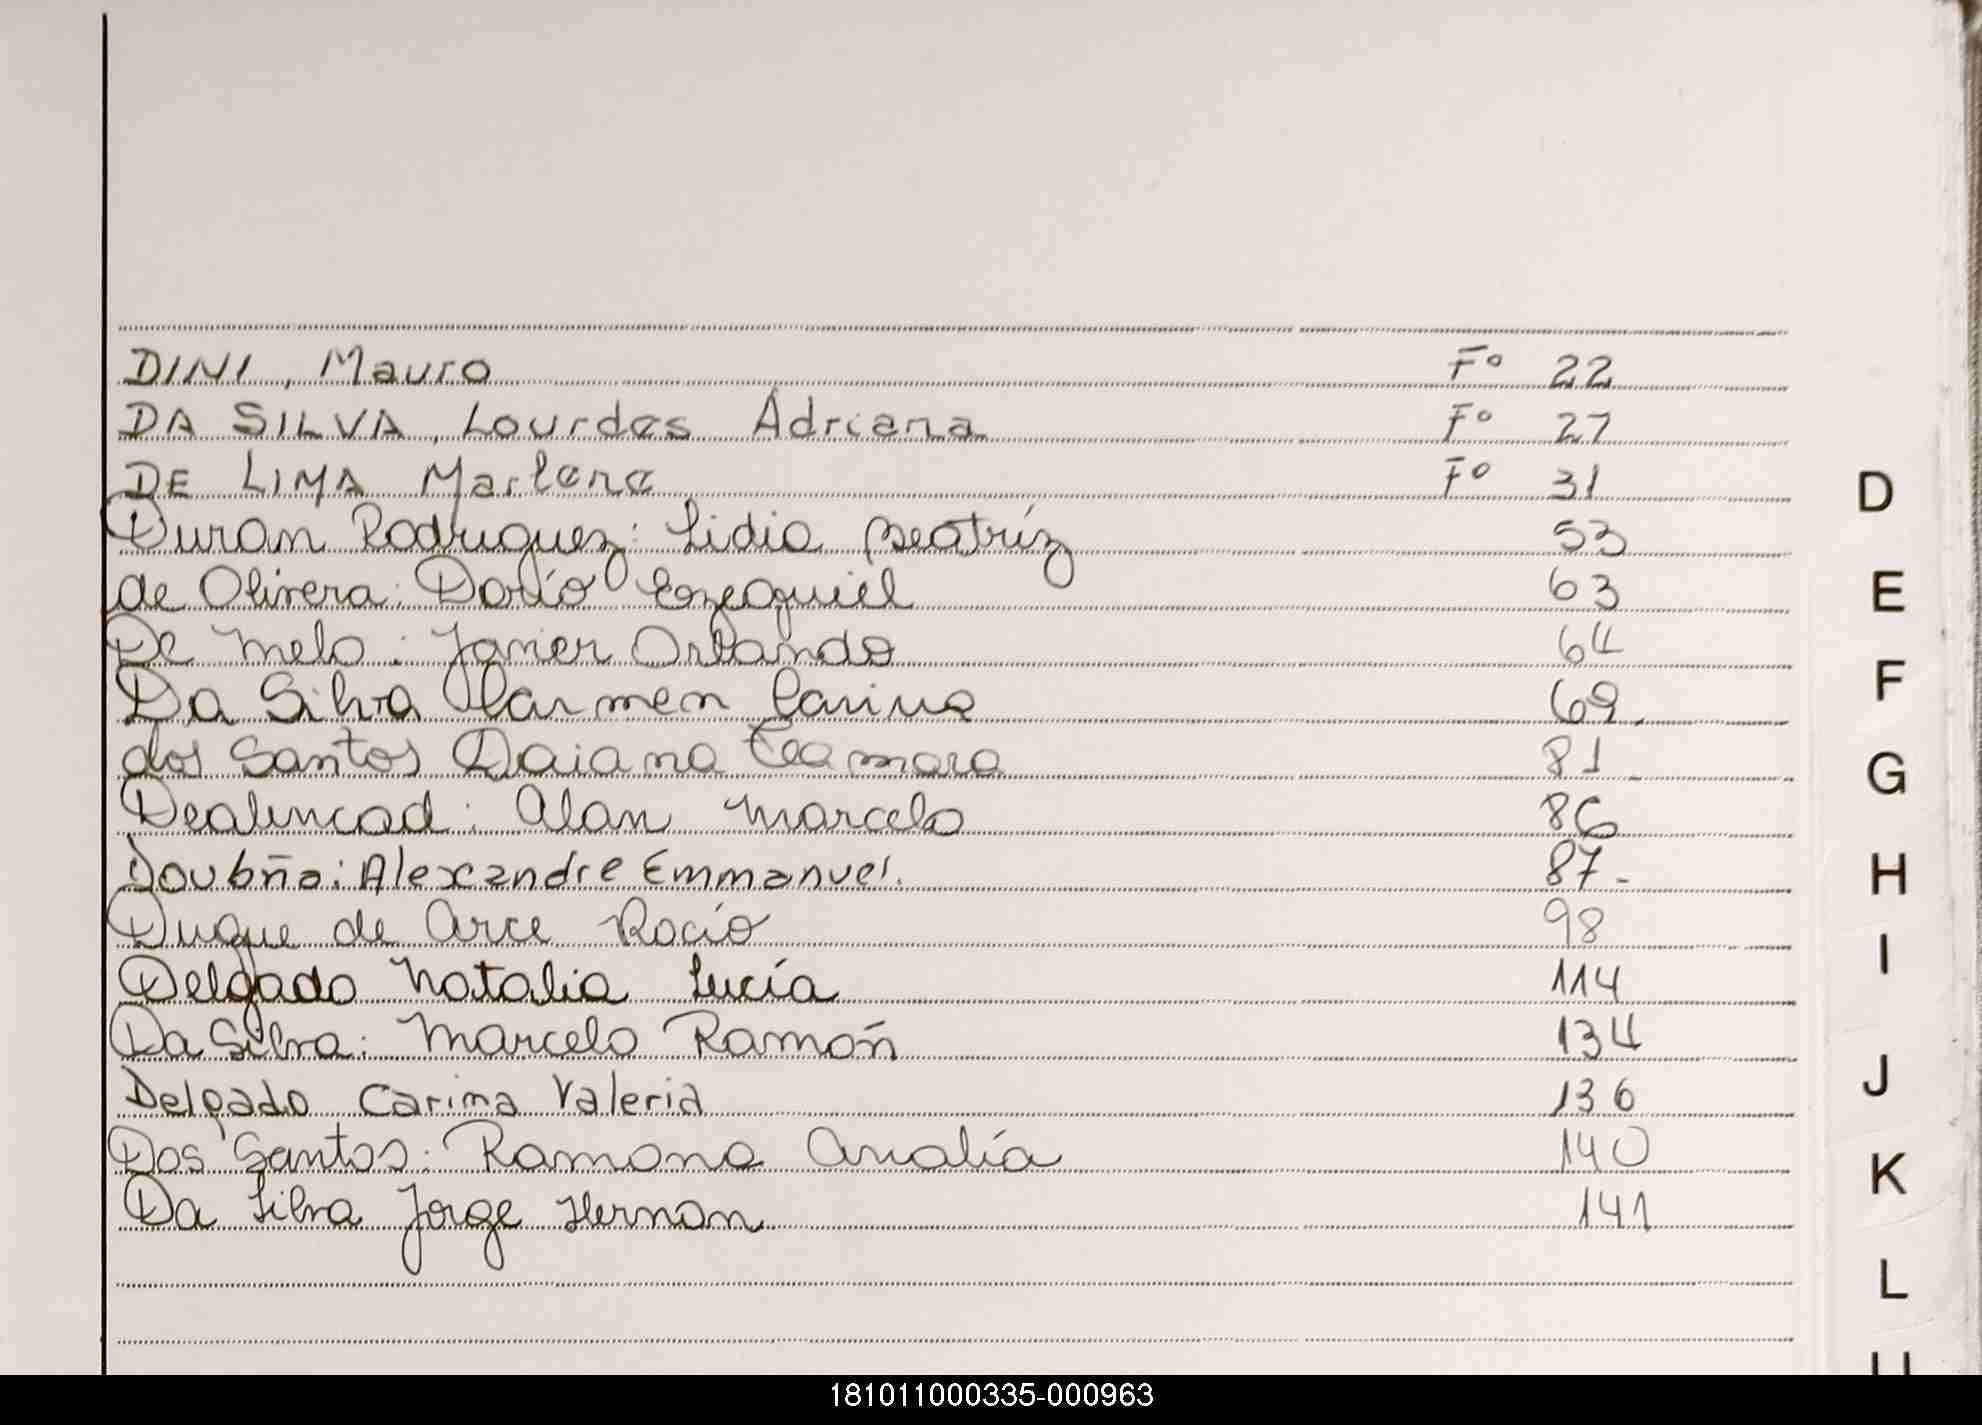 DINI, Mauro F° 22
DA SILVA, Lourdes Adriana F° 27
DE LIMA Marlene F° 31
Duran Rodriguez: Lidia Beatríz 53
de Olivera: Darío Ezequiel 63
De Melo: Javier Orlando 64
Da Silva Carmen Carina 69.
dos Santos Daiana 81
Dealencad: Alan Marcelo 86
Doubña: Alexandre Emmanuel. 87-
Duque de Arce Rocío 98
Delgado Natalia Lucía 114
Da Silva: Marcelo Ramón 134
Delgado Carina Valeria 136
Dos Santos: Ramona Analía 140
Da Silva Jorge Hernan 141
D
E
F
G
H
I
J
K
L
181011000335-000963